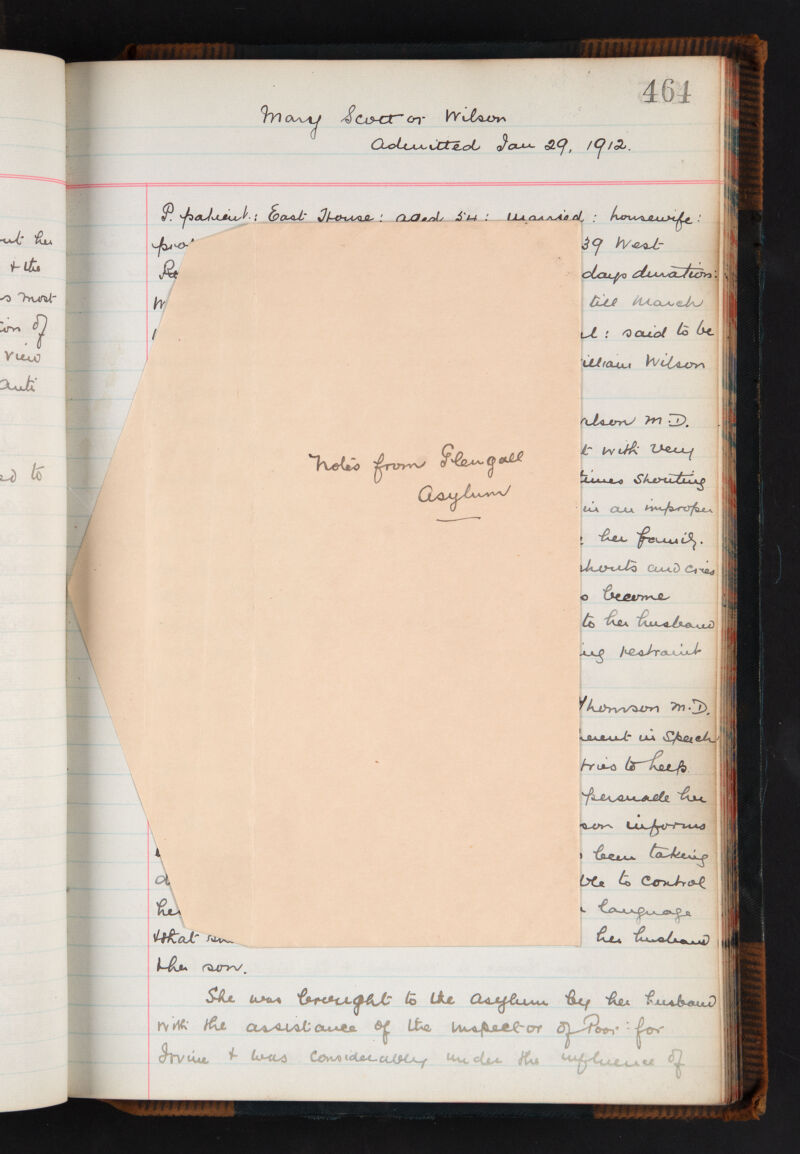 464
Mary Scott or Wilson
Admitted Jan 29, 1912.
P. patient: East House: aged 54: married: housewife:
39 West
days duration:
till March
said to be
William Wilson
M.D.
with very
times shouting
in an improper
her family.
shouts and cries
become
to her husband
restraint
Thomson M.D.
in speech
tries to keep
persuade her
son informs
been taking
to control
her language
+ that her husband
+ her son.
She was brought to the asylum by her husband
with the assistance of the Inspector of Poor for
Irvine + was considerably under the influence of
Notes from Glengall
Asylum
out her
+ the
most
of
view
anti
to